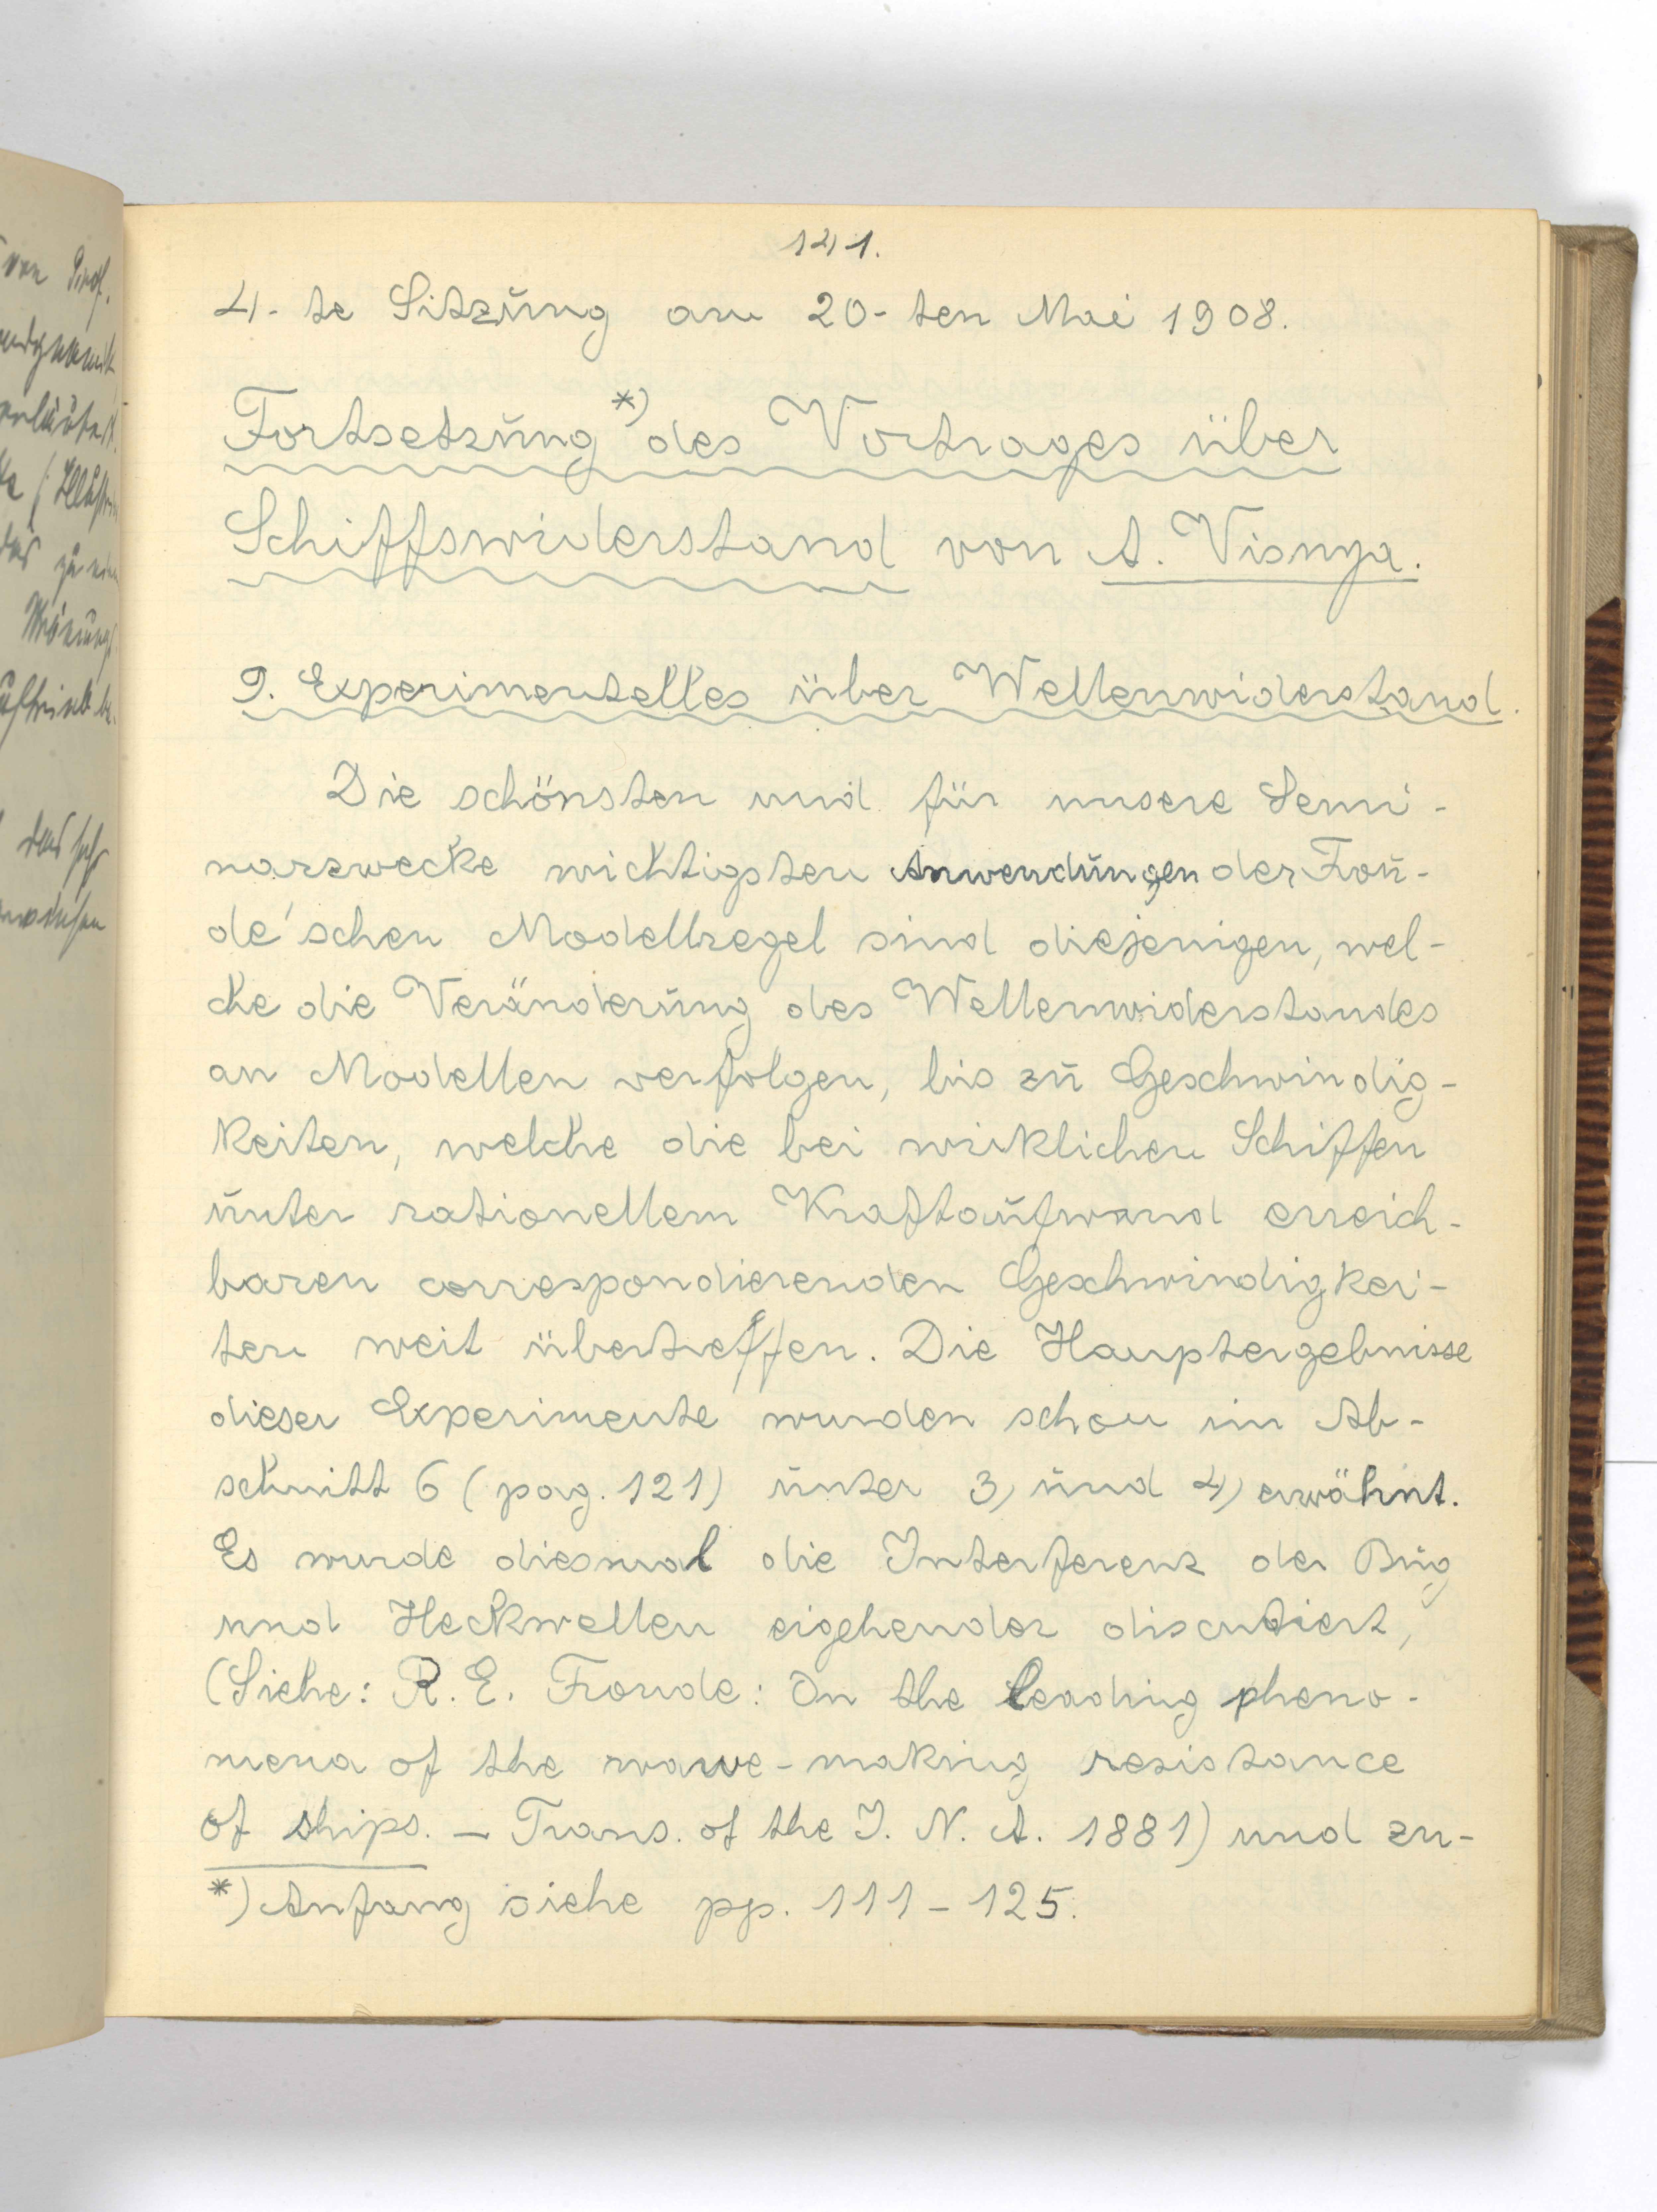 141.
4-te Sitzung am 20-ten Mai 1908.
Fortsetzung *) des Vortrages über
Schiffswiderstand von A. Visnya.
9. Experimentelles über Wellenwiderstand.
Die schönsten und für unsere Semi-
narzwecke wichtigsten Anwendungen der Frou-
de'schen Modellregel sind diejenigen, wel-
che die Veränderung des Wellenwiderstandes
an Modellen verfolgen, bis zu Geschwindig-
keiten, welche die bei wirklichen Schiffen
unter rationellem Kraftaufwand erreich-
baren correspondierenden Geschwindigkei-
ten weit übertreffen. Die Hauptergebnisse
dieser Experimente wurden schon im Ab-
schnitt 6 (pag. 121) unter 3) und 4) erwähnt.
Es wurde diesmal die Interferenz der Bug
und Heckwellen eigehender discutiert,
(Siehe: R. E. Froude: On the leading pheno-
mena of the wawe-making resistance
of ships. — Trans. of the I. N. A. 1881) und zu-
*) Anfang siehe pp. 111 – 125.